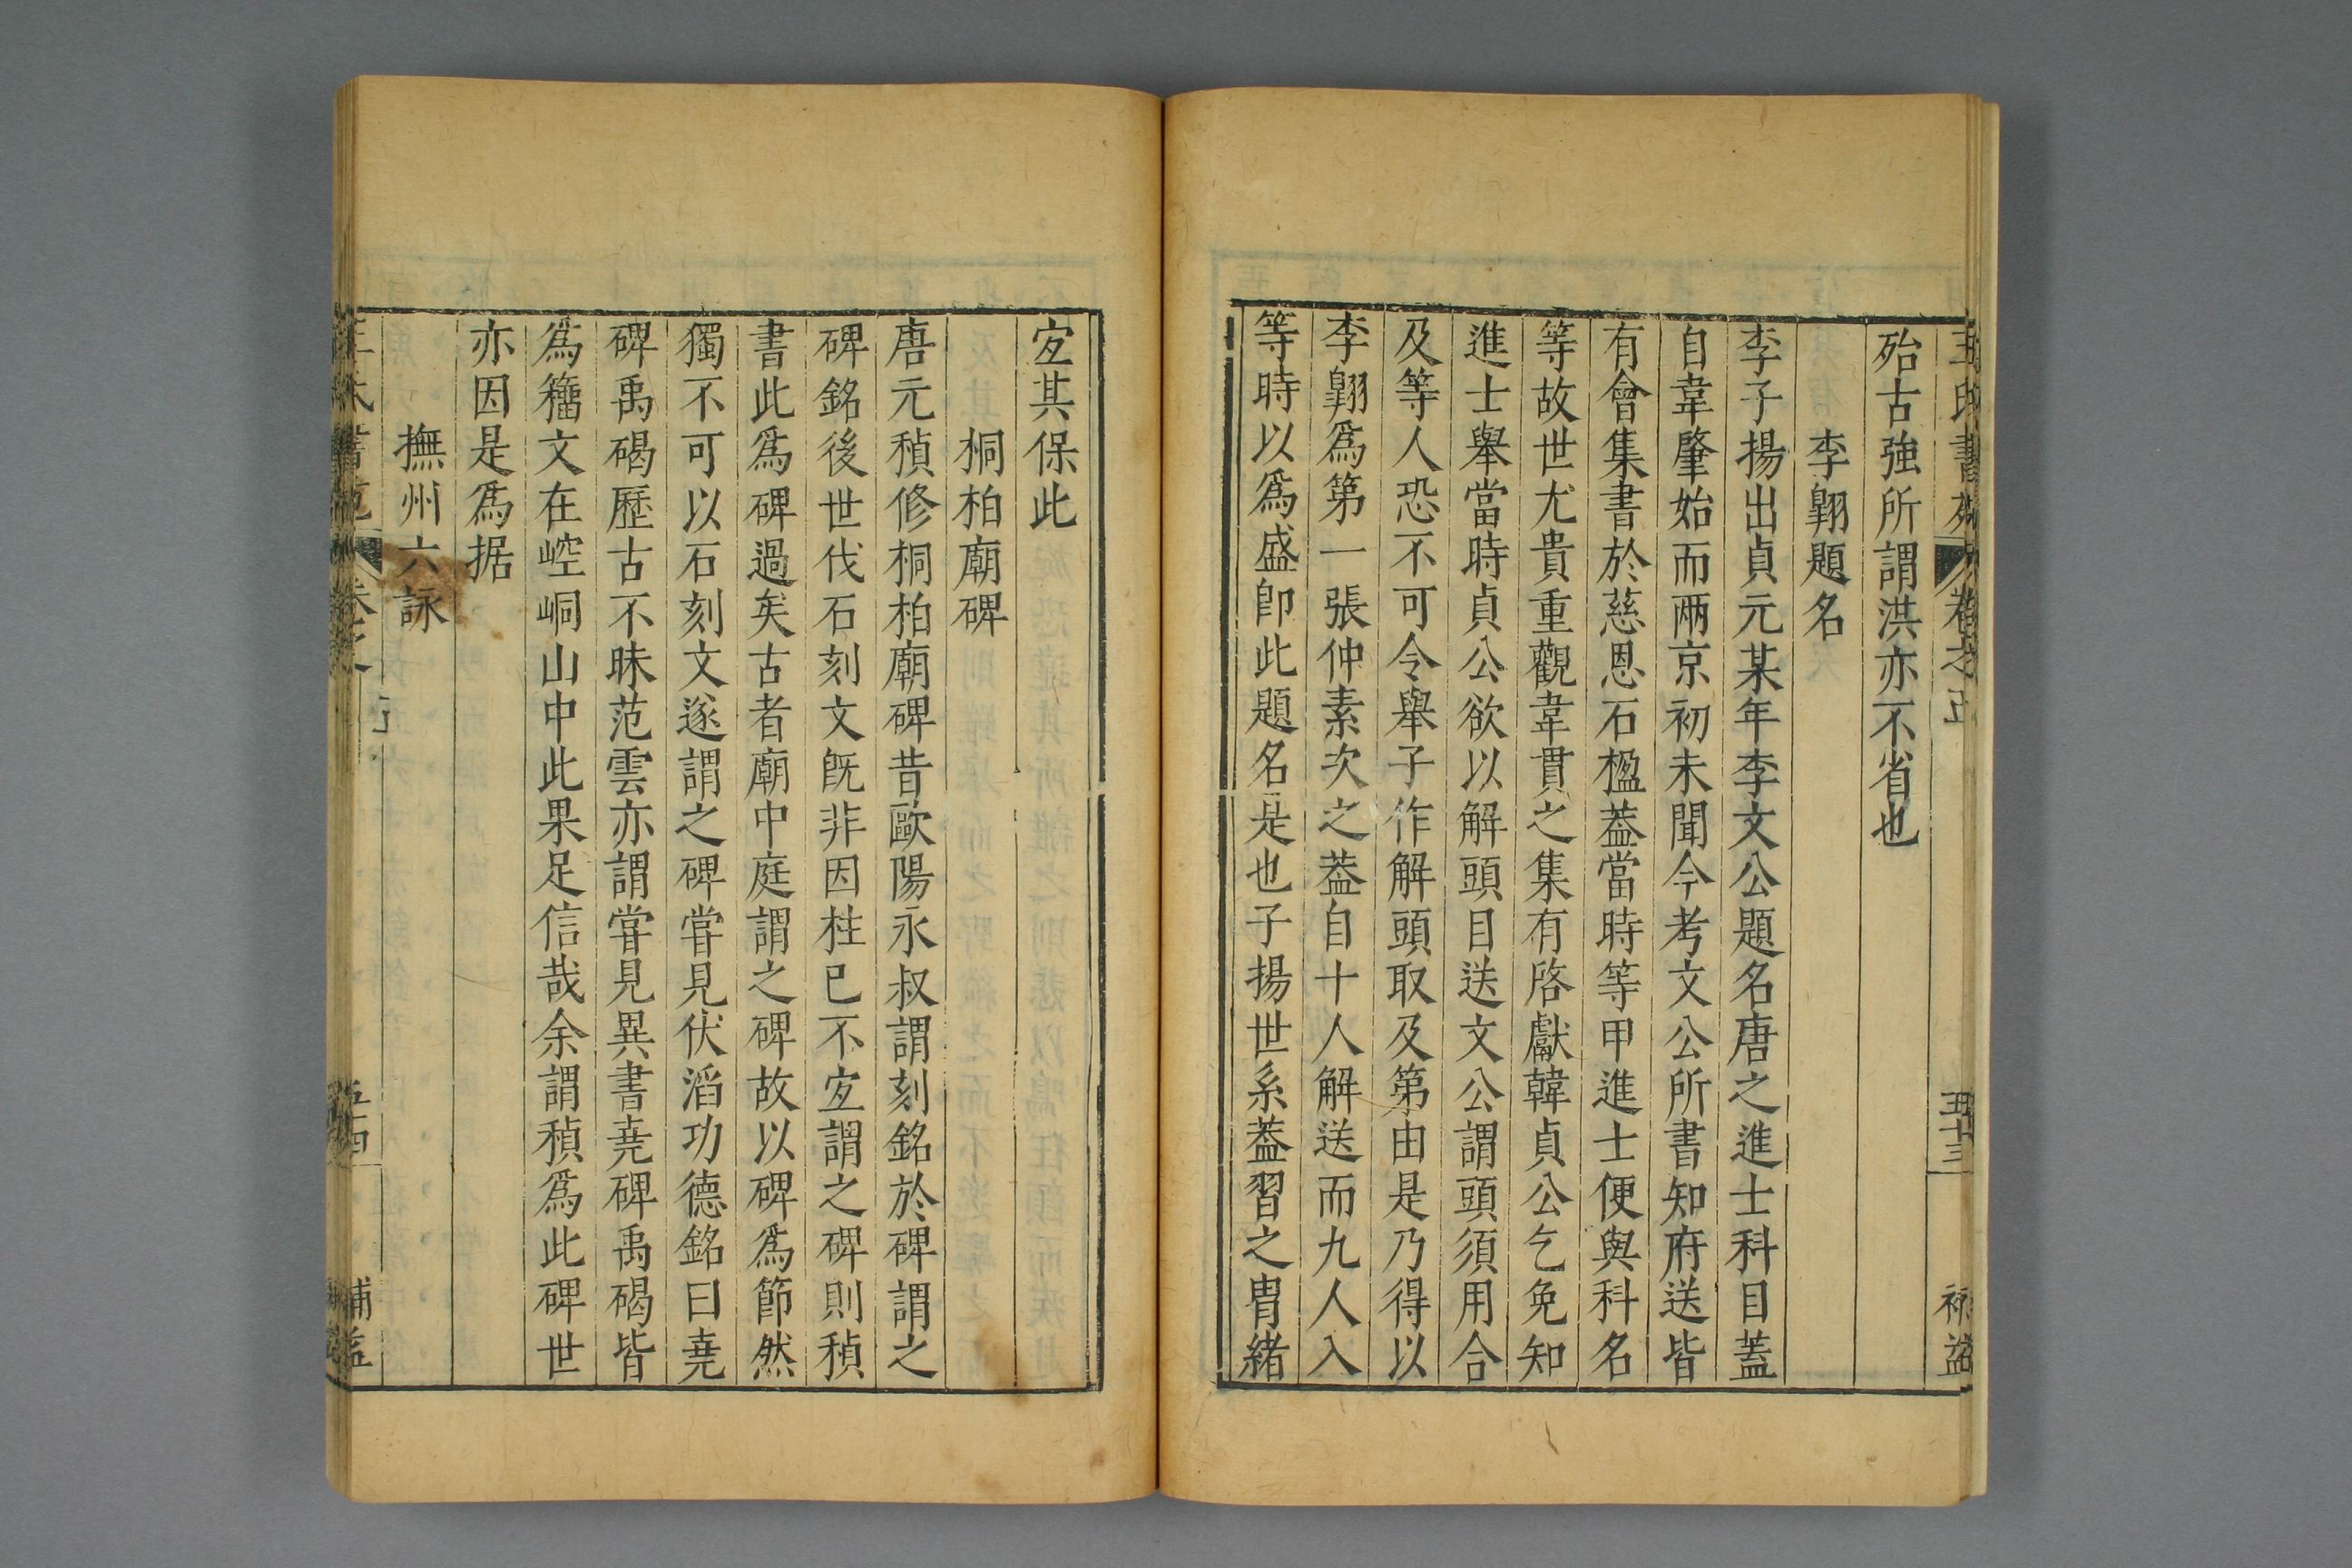 王氏書苑 卷之正 五十三 補益
殆古強所謂洪亦不省也
李翺題名
李子揚出貞元某年李文公題名唐之進士科目蓋
自韋肇始而兩京初未聞今考文公所書知府送皆
有會集書於慈恩石楹葢當時等甲進士便與科名
等故世尤貴重觀韋貫之集有啓獻韓貞公乞免知
進士舉當時貞公欲以解頭目送文公謂頭須用合
及等人恐不可令舉子作解頭取及第由是乃得以
李翺爲第一張仲素次之葢自十人解送而九人入
等時以爲盛卽此題名是也子揚世系葢習之胄緒
宐其保此
桐柏廟碑
唐元稹修桐柏廟碑昔歐陽永叔謂刻銘於碑謂之
碑銘後世伐石刻文旣非因柱已不宐謂之碑則稹
書此爲碑過矣古者廟中庭謂之碑故以碑爲節然
獨不可以石刻文遂謂之碑甞見伏滔功德銘曰堯
碑禹碣歷古不昧范雲亦謂甞見異書堯碑禹碣皆
爲籀文在崆峒山中此果足信哉余謂稹爲此碑世
亦因是爲据
撫州六詠